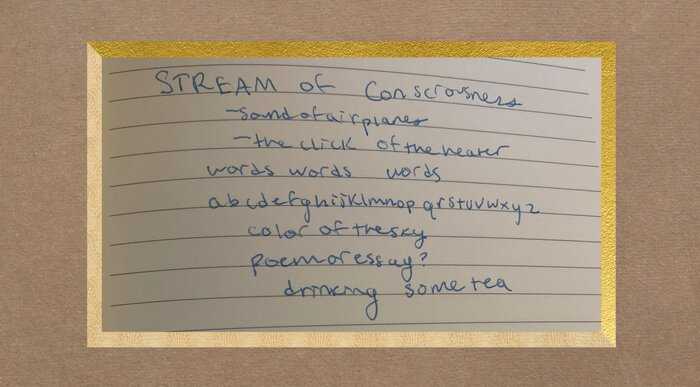 STREAM of Consciousness
-sound of airplanes
-the click of the heater
words words words
abcdefghijklmnop qrstuvwxyz
color of the sky
poem or essay?
drinking some tea